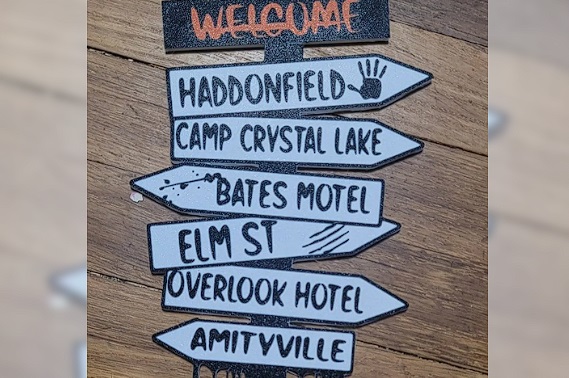 WELCOME
HADDONFIELD
CAMP CRYSTAL LAKE
BATES MOTEL
ELM ST
OVERLOOK HOTEL
AMITYVILLE